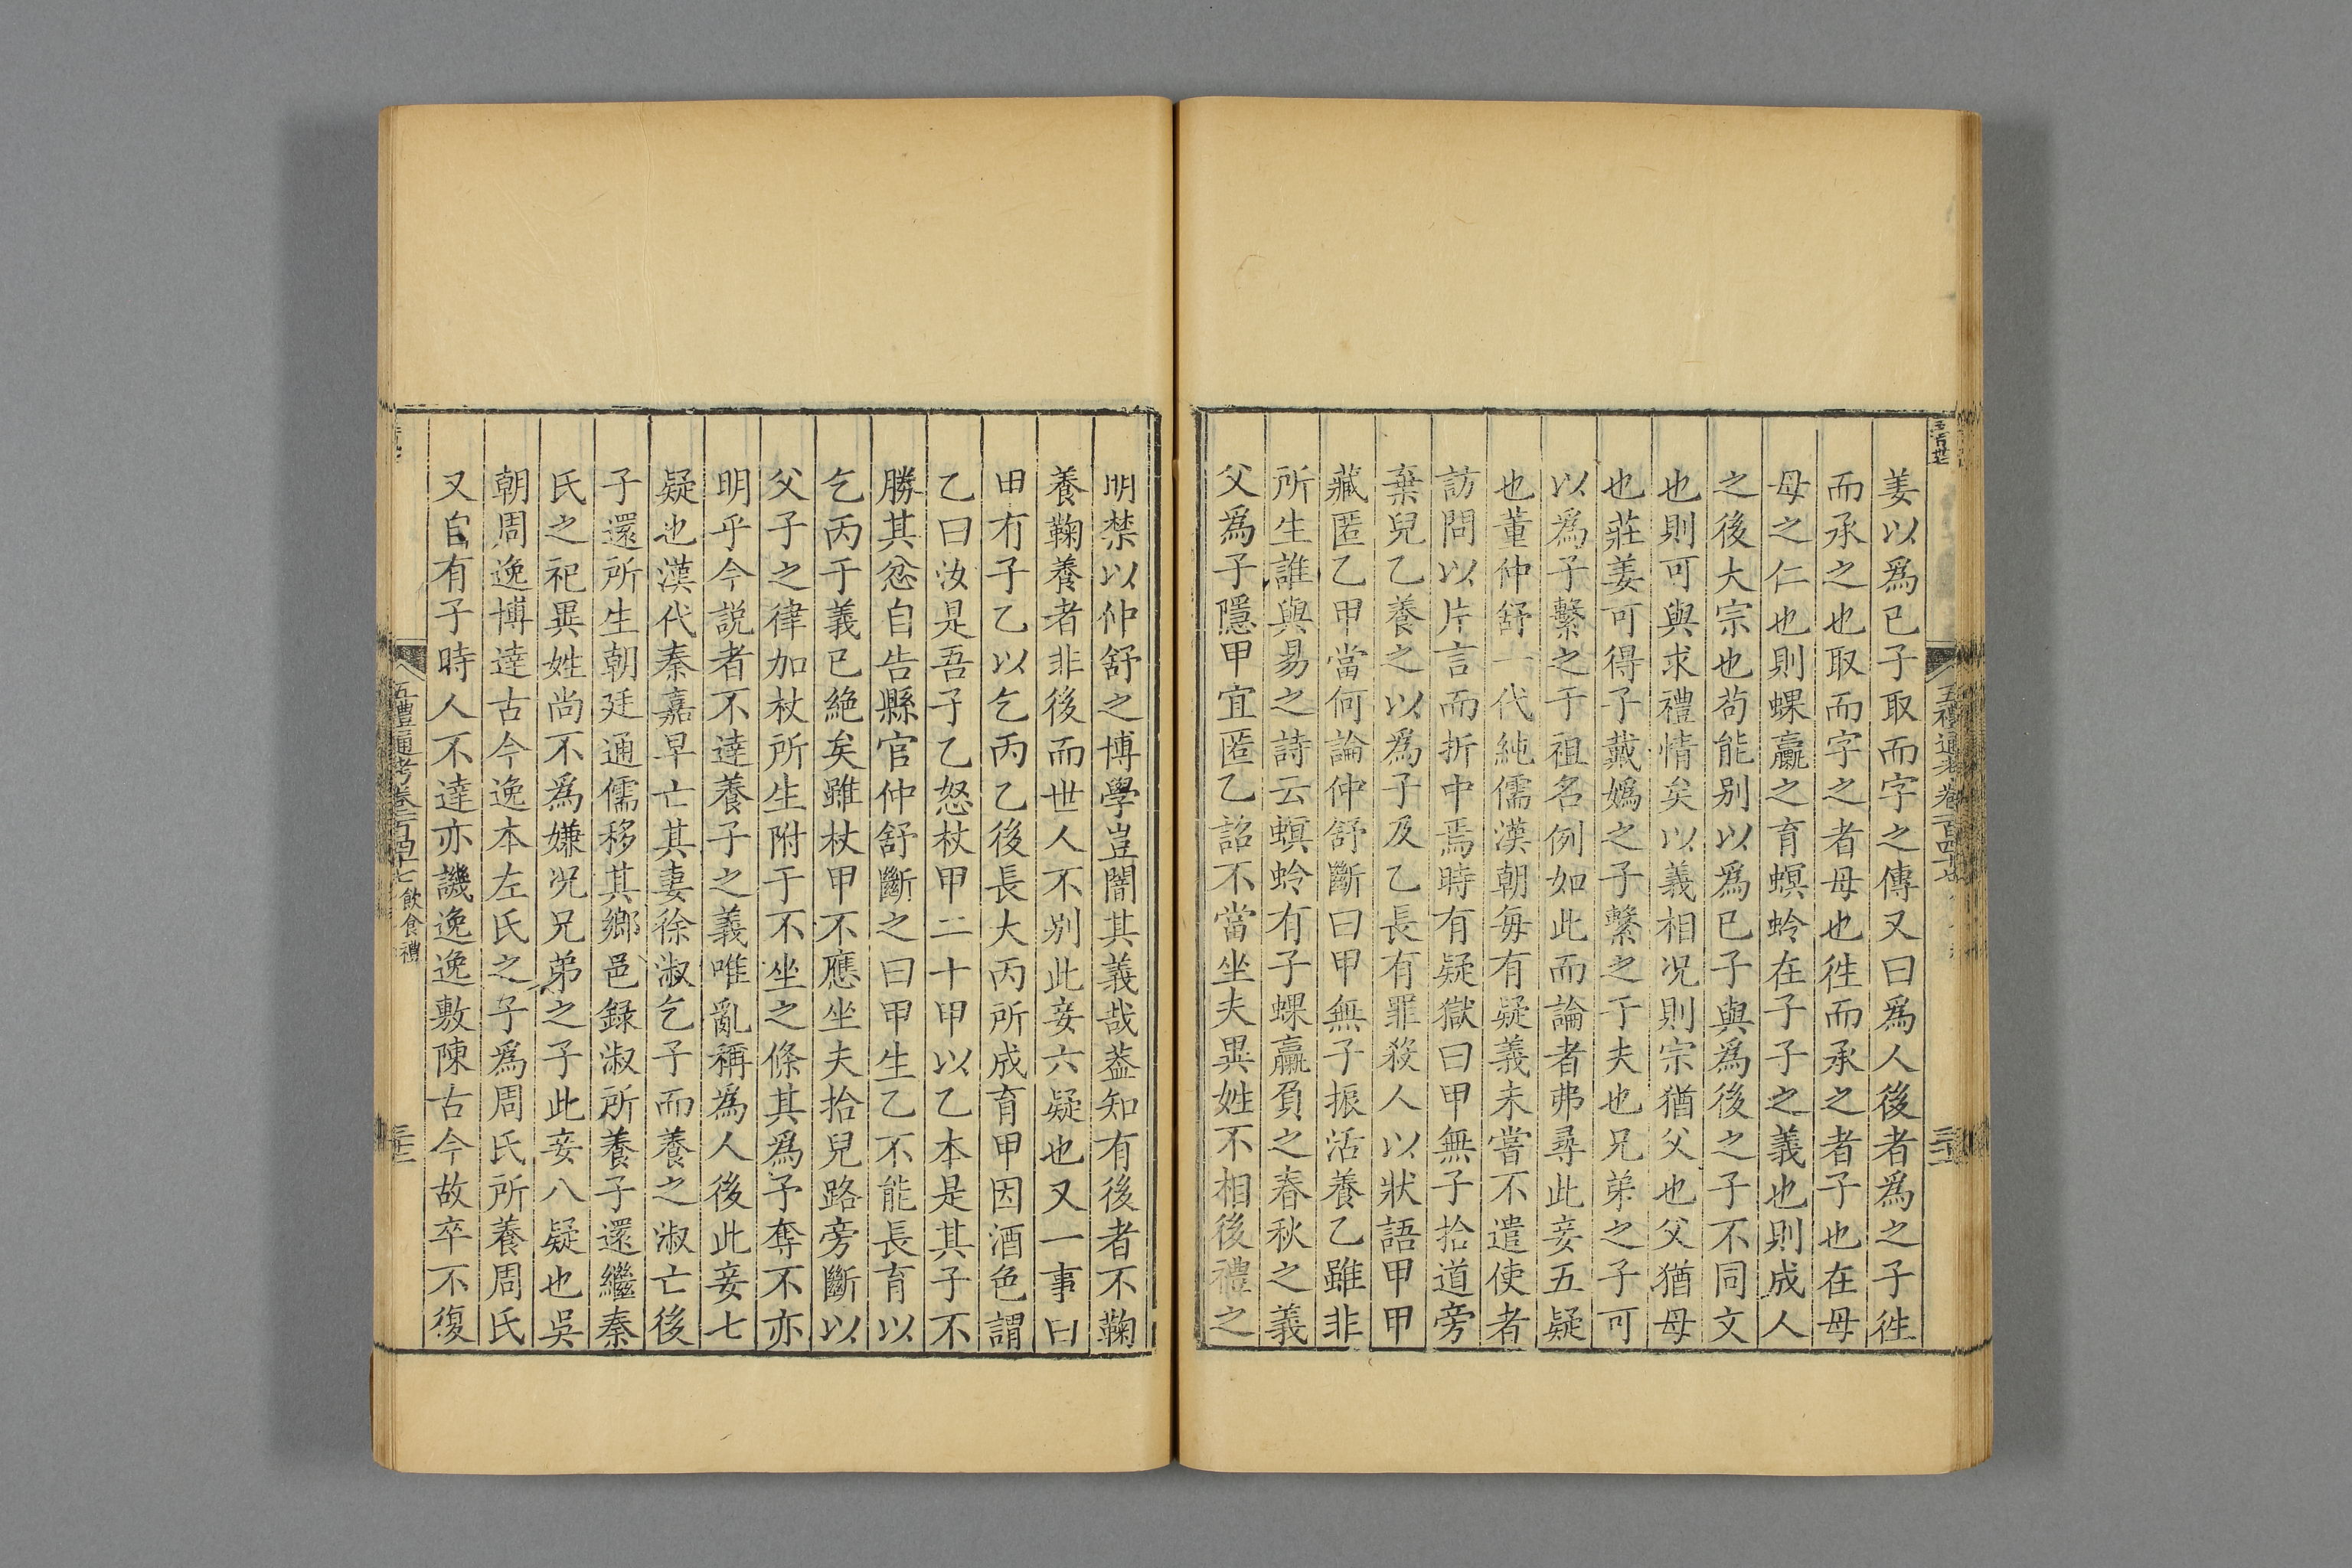 姜以爲已子取而字之傳又曰爲人後者爲之子徃
而承之也取而字之者母也徃而承之者子也在母
母之仁也則蜾蠃之育螟蛉在子子之義也則成人
之後大宗也苟能别以爲已子與爲後之子不同文
也則可與求禮情矣以義相况則宗猶父也父猶母
也莊姜可得子戴嬀之子繫之于夫也兄弟之子可
以爲子繫之于祖名例如此而論者弗尋此妾五疑
也董仲舒一代純儒漢朝每有疑義未嘗不遣使者
訪問以片言而折中焉時有疑獄曰甲無子拾道旁
棄兒乙養之以爲子及乙長有罪殺人以狀語甲甲
藏匿乙甲當何論仲舒斷曰甲無子振活養乙雖非
所生誰與易之詩云螟蛉有子蜾蠃負之春秋之義
父爲子隱甲宜匿乙詔不當坐夫異姓不相後禮之
明禁以仲舒之博學豈闇其義哉葢知有後者不鞠
養鞠養者非後而世人不别此妾六疑也又一事曰
甲有子乙以乞丙乙後長大丙所成育甲因酒色謂
乙曰汝是吾子乙怒杖甲二十甲以乙本是其子不
勝其忿自告縣官仲舒斷之曰甲生乙不能長育以
乞丙于義已絶矣雖杖甲不應坐夫拾兒路旁斷以
父子之律加杖所生附于不坐之條其爲予奪不亦
明乎今説者不達養子之義唯亂稱爲人後此妾七
疑也漢代秦嘉早亡其妻徐淑乞子而養之淑亡後
子還所生朝廷通儒移其鄉邑録淑所養子還繼秦
氏之祀異姓尚不爲嫌况兄弟之子此妾八疑也吳
朝周逸博達古今逸本左氏之子爲周氏所養周氏
又自有子時人不達亦譏逸逸敷陳古今故卒不復
五禮通考卷一百四十七 飲食禮